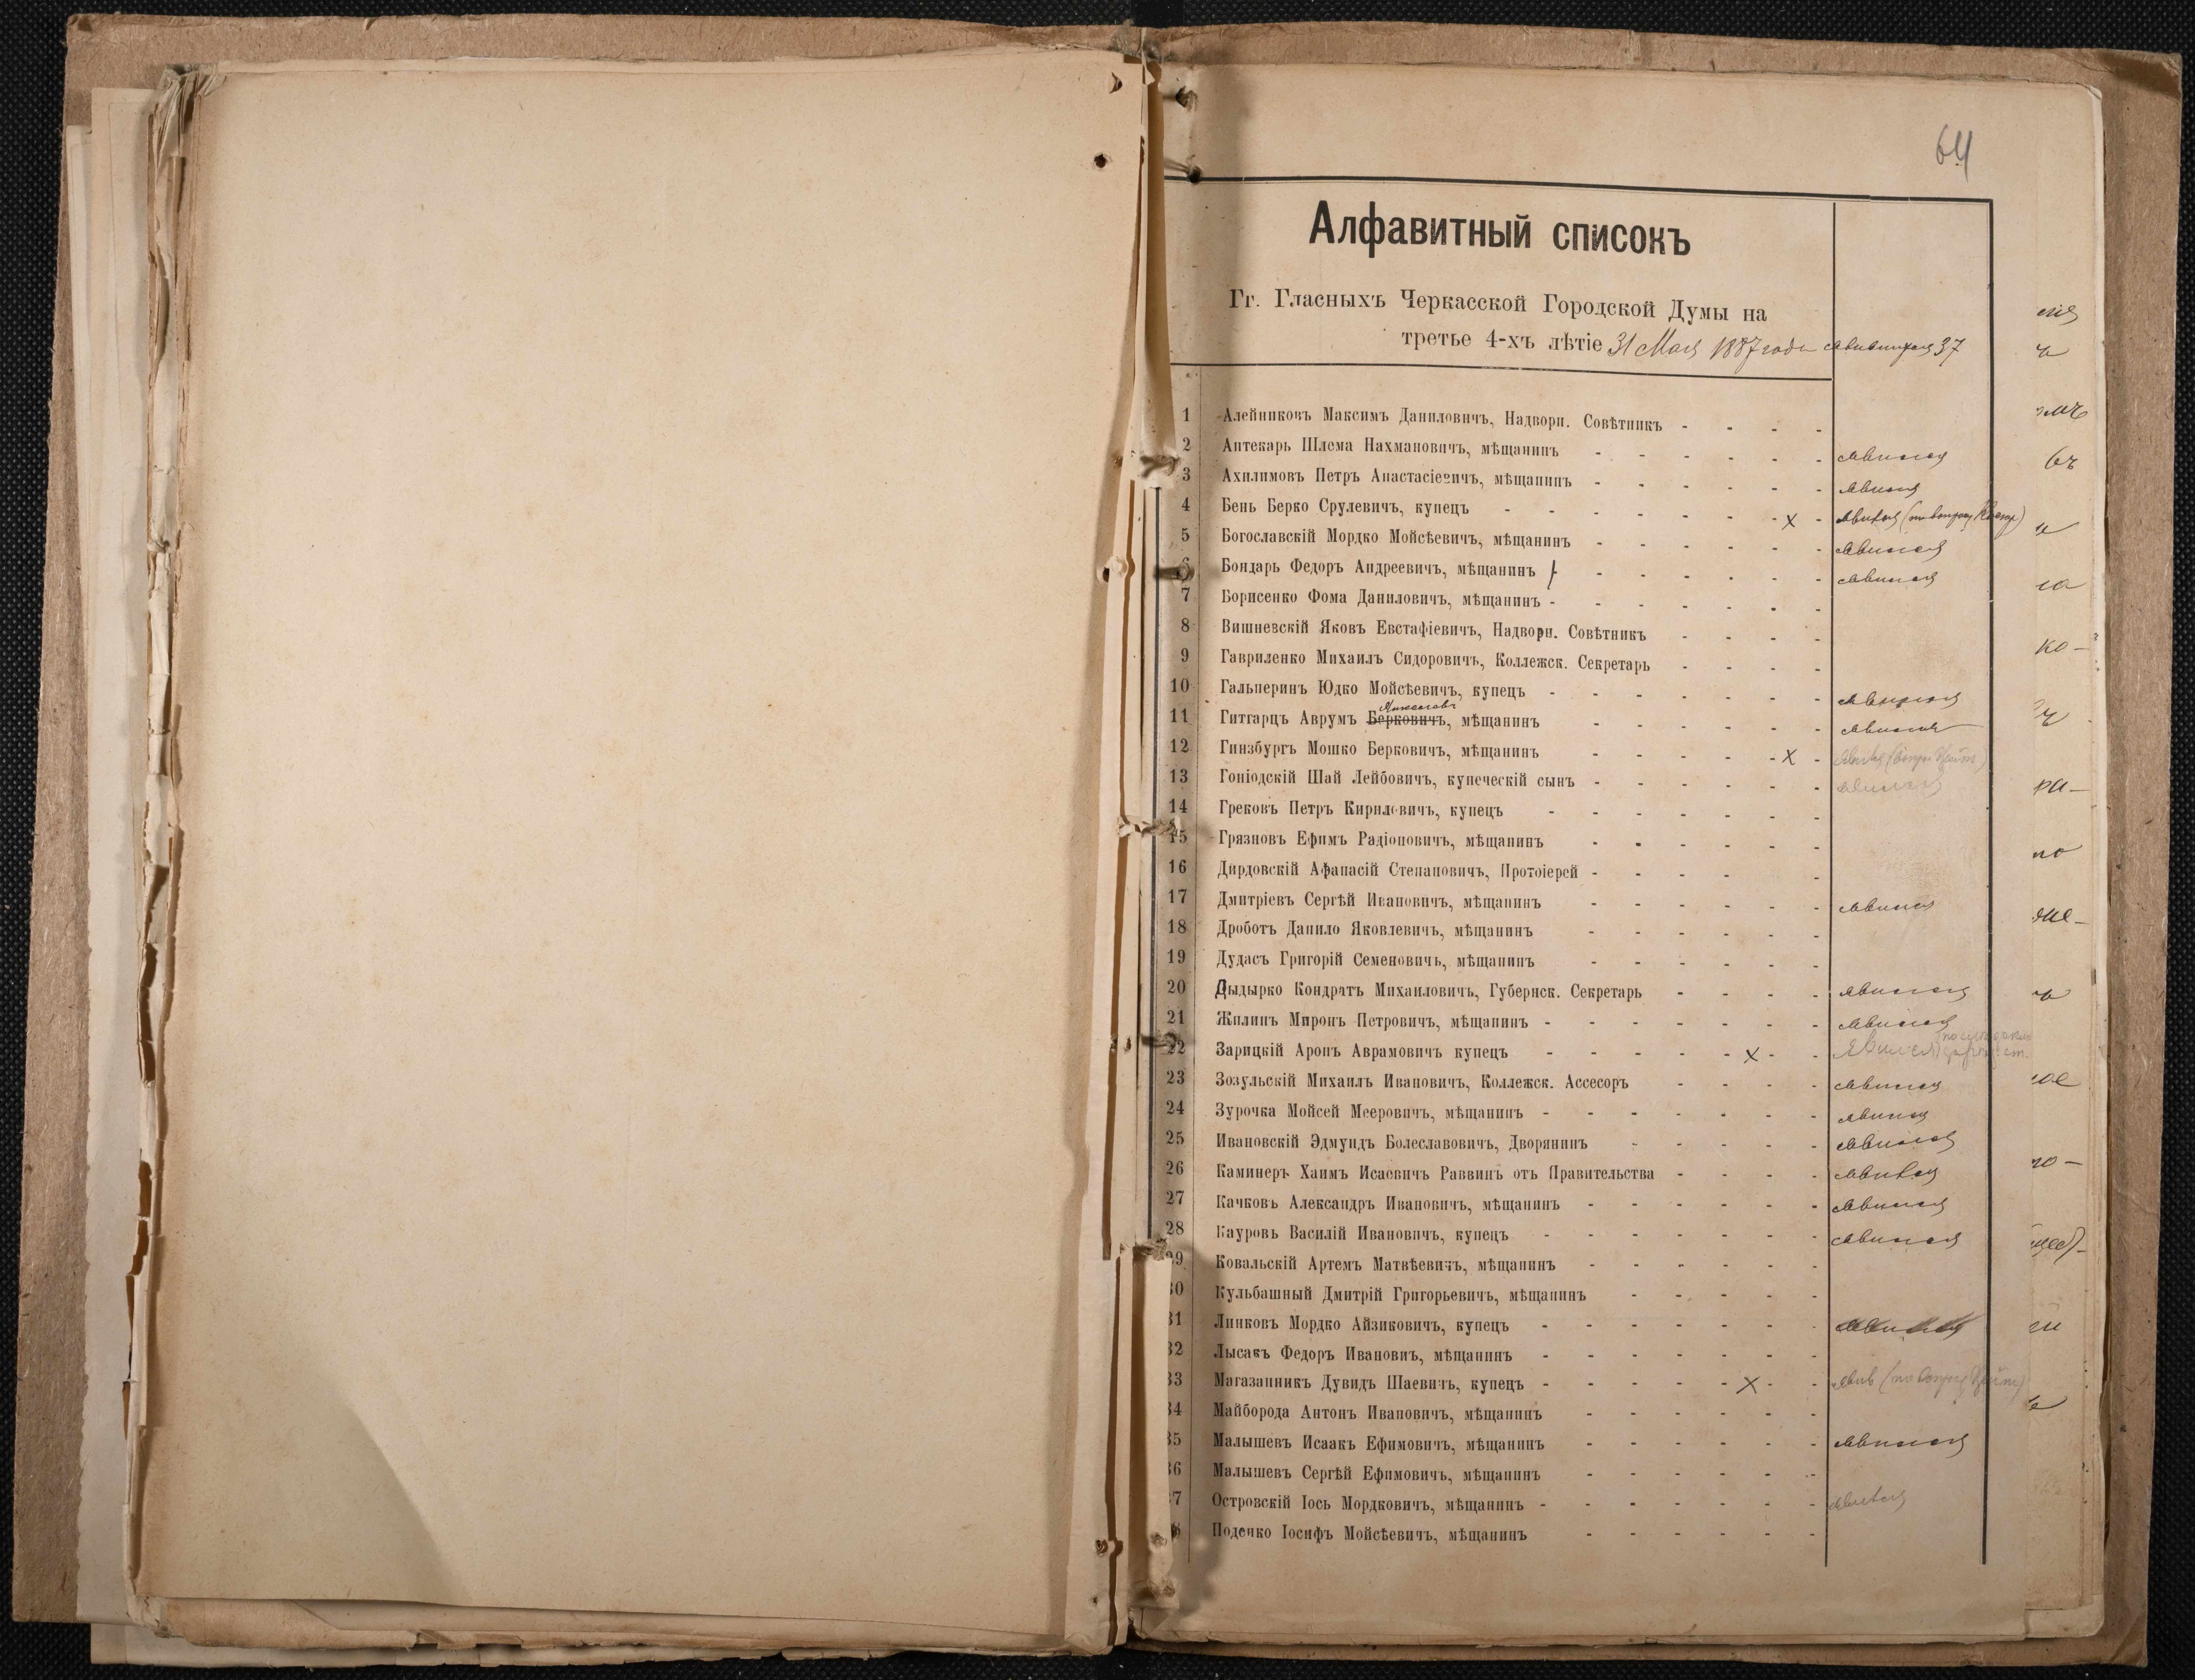 64
Алфавитный списокъ
Гг. Гласныхъ Черкасской Городской Думы на
третье 4-хъ лѣтіе 31 Мая 1887 года 37
1 Алейниковъ Максимъ Даниловичъ, Надворн. Совѣтникъ - - - -
2 Аптекарь Шлема Нахмановичъ, мѣщанинъ - - - - - - явился
3 Ахилимовъ Петръ Анастасіевичъ, мѣщанинъ - - - - - - явился
4 Бень Берко Срулевичъ, купецъ - - - - - - х - явился
5 Богославскій Мордко Мойсѣевичъ, мѣщанинъ - - - - - - явился
6 Бондарь Федоръ Андреевичъ, мѣщанинъ - - - - - - явился
7 Борисенко Фома Даниловичъ, мѣщанинъ - - - - - - -
8 Вишневскій Яковъ Евстафіевичъ, Надворн. Совѣтникъ - - - -
9 Гавриленко Михаилъ Сидоровичъ, Коллежск. Секретарь - - - -
10 Гальперинъ Юдко Мойсѣевичъ, купецъ - - - - - - - явился
11 Гитгарцъ Аврумъ Берковичъ, мѣщанинъ - - - - - - явился
12 Гинзбургъ Мошко Берковичъ, мѣщанинъ - - - - - х - явился
13 Гоніодскій Шай Лейбовичъ, купеческій сынъ - - - - - - явился
14 Грековъ Петръ Кириловичъ, купецъ - - - - - - -
15 Грязновъ Ефимъ Радіоновичъ, мѣщанинъ - - - - - -
16 Дирдовскій Афанасій Степановичъ, Протоіерей - - - - -
17 Дмитріевъ Сергѣй Ивановичъ, мѣщанинъ - - - - - - явился
18 Дроботъ Данило Яковлевичъ, мѣщанинъ - - - - - -
19 Дудасъ Григорій Семеновичъ, мѣщанинъ - - - - - -
20 Дыдырко Кондратъ Михаиловичъ, Губернск. Секретарь - - - - явился
21 Жилинъ Миронъ Петровичъ, мѣщанинъ - - - - - - - явился
22 Зарицкій Аронъ Аврамовичъ купецъ - - - - - х - - явился
23 Зозульскій Михаилъ Ивановичъ, Коллежск. Ассесоръ - - - - явился
24 Зурочка Мойсей Мееровичъ, мѣщанинъ - - - - - - - явился
25 Ивановскій Эдмундъ Болеславовичъ, Дворянинъ - - - - - явился
26 Каминеръ Хаимъ Исаевичъ Раввинъ отъ Правительства - - - - явился
27 Качковъ Александръ Ивановичъ, мѣщанинъ - - - - - - явился
28 Кауровъ Василій Ивановичъ, купецъ - - - - - - - явился
29 Ковальскій Артемъ Матвѣевичъ, мѣщанинъ - - - - - -
30 Кульбашный Дмитрій Григорьевичъ, мѣщанинъ - - - - -
31 Линковъ Мордко Айзиковичъ, купецъ - - - - - - - явился
32 Лысакъ Федоръ Ивановиъ, мѣщанинъ - - - - - - -
33 Магазанникъ Дувидъ Шаевичъ, купецъ - - - - - х - -
34 Майборода Антонъ Ивановичъ, мѣщанинъ - - - - - -
35 Малышевъ Исаакъ Ефимовичъ, мѣщанинъ - - - - - - явился
36 Малышевъ Сергѣй Ефимовичъ, мѣщанинъ - - - - - -
37 Островскій Іось Мордковичъ, мѣщанинъ - - - - - - - явился
38 Поденко Іосифъ Мойсѣевичъ, мѣщанинъ - - - - - -